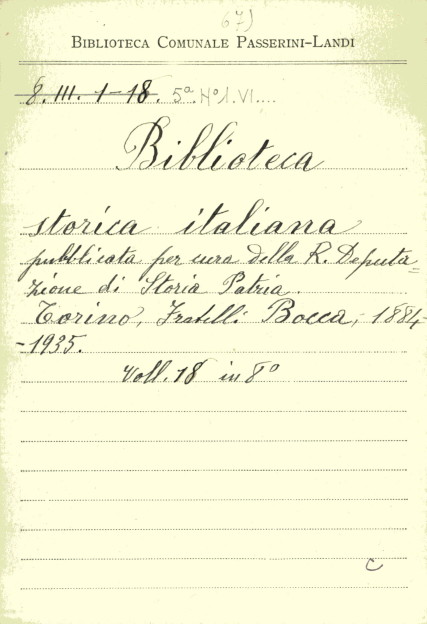 67)
BIBLIOTECA COMUNALE PASSERINI-LANDI
8. III. 1-18. 5ª. Nº 1. VI....
Biblioteca
storica italiana
pubblicata per cura della R. Deputa=
zione di Storia Patria.
Torino, Fratelli Bocca, 1884-
-1935.
Voll. 18 in 8º
C